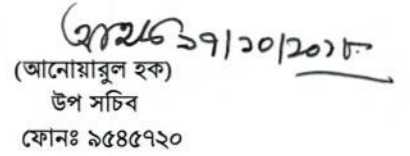 ১৭/১০/২০১৮
(আনোয়ারুল হক)
উপ সচিব
ফোনঃ ৯৫৪৫৭২০